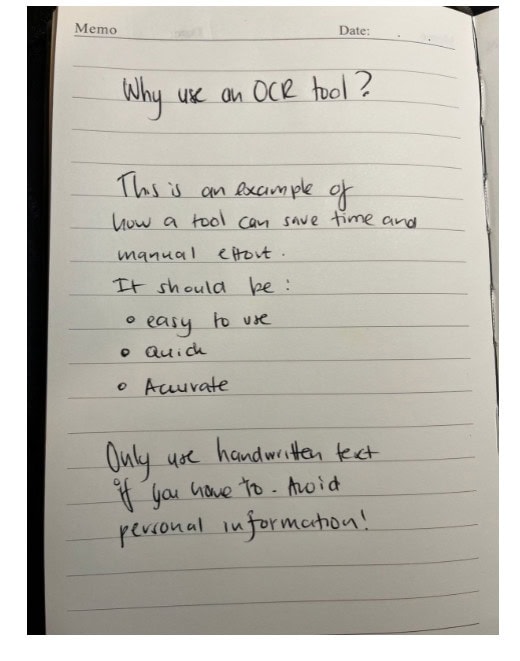 Memo Date:
Why use an OCR tool?
This is an example of
how a tool can save time and
manual effort.
It should be:
• easy to use
• Quick
• Accurate
Only use handwritten text
if you have to. Avoid
personal information!